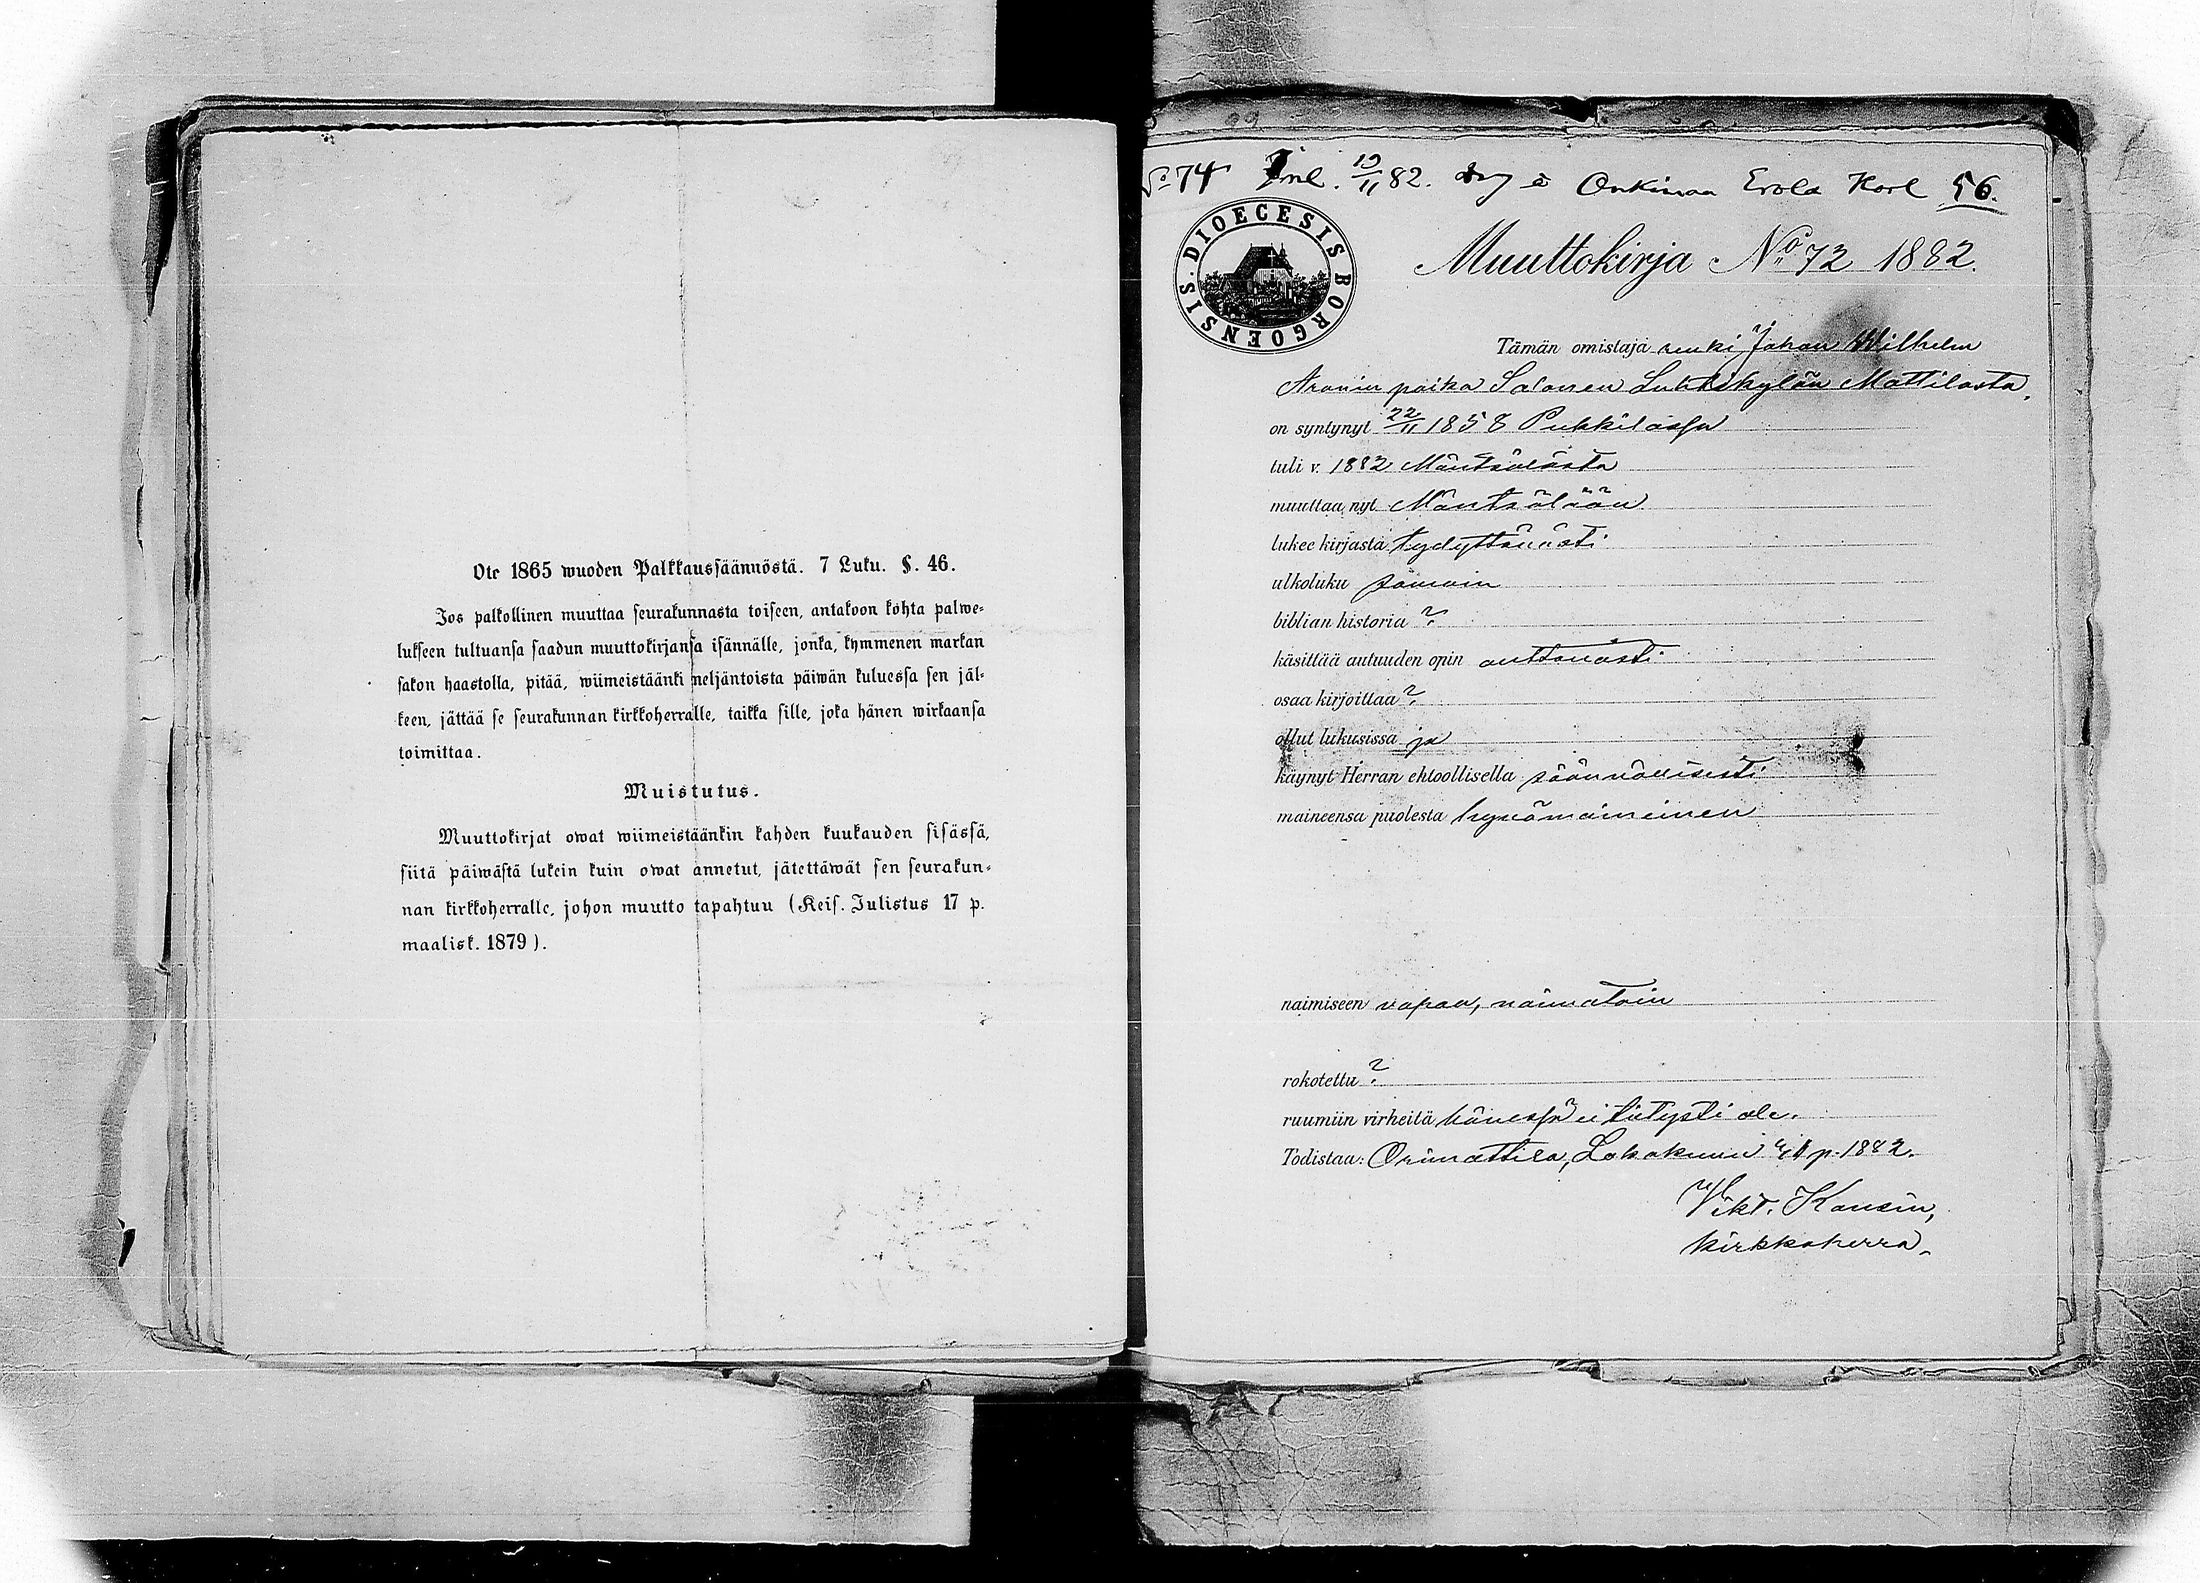 Ote 1865 wuoden Palkkaussäännöstä. 7 Luku. §. 46.
Jos palkollinen muuttaa seurakunnasta toiseen, antakoon kohta palwe-
lukseen tultuansa saadun muuttokirjansa isännälle, jonka, kymmenen markan
sakon haastolla, pitää, wiimeistäänki neljäntoista päiwän kuluessa sen jäl-
keen, jättää se seurakunnan kirkkoherralle, taikka sille, joka hänen wirkaansa
toimittaa.
Muistutus.
Muuttokirjat owat wiimeistäänkin kahden kuukauden sisässä,
siitä päiwästä lukein kuin owat annetut, jätettäwät sen seurakun-
nan kirkkoherralle, johon muutto tapahtuu (Keis. Julistus 17 p.
maalisk. 1879).
No 74 Inl. 19/11 82. Onkimaa Erola Karl 56.
DIOECESIS BORGOENSIS.
Muuttokirja No 72 1882.
Tämän omistaja renki Johan Wilhelm
Aronin poika Salonen Luhtikylän Mattilasta,
on syntynyt 22/11 1858 Pukkilassa
tuli v. 1882 Mäntsälästä
muuttaa nyt Mäntsälään
lukee kirjasta tydyttävästi
ulkoluku samoin
biblian historia ?
käsittää autuuden opin auttavasti
osaa kirjoittaa ?
ollut lukusissa ja
käynyt Herran ehtoollisella säännöllisesti
maineensa puolesta hyvämaineinen
naimiseen vapaa, naimatoin
rokotettu ?
ruumiin virheitä hänessä ei tietysti ole.
Todistaa: Orimattila, Lokakuun p. 1882.
Vikt. Kansin,
kirkkoherra.